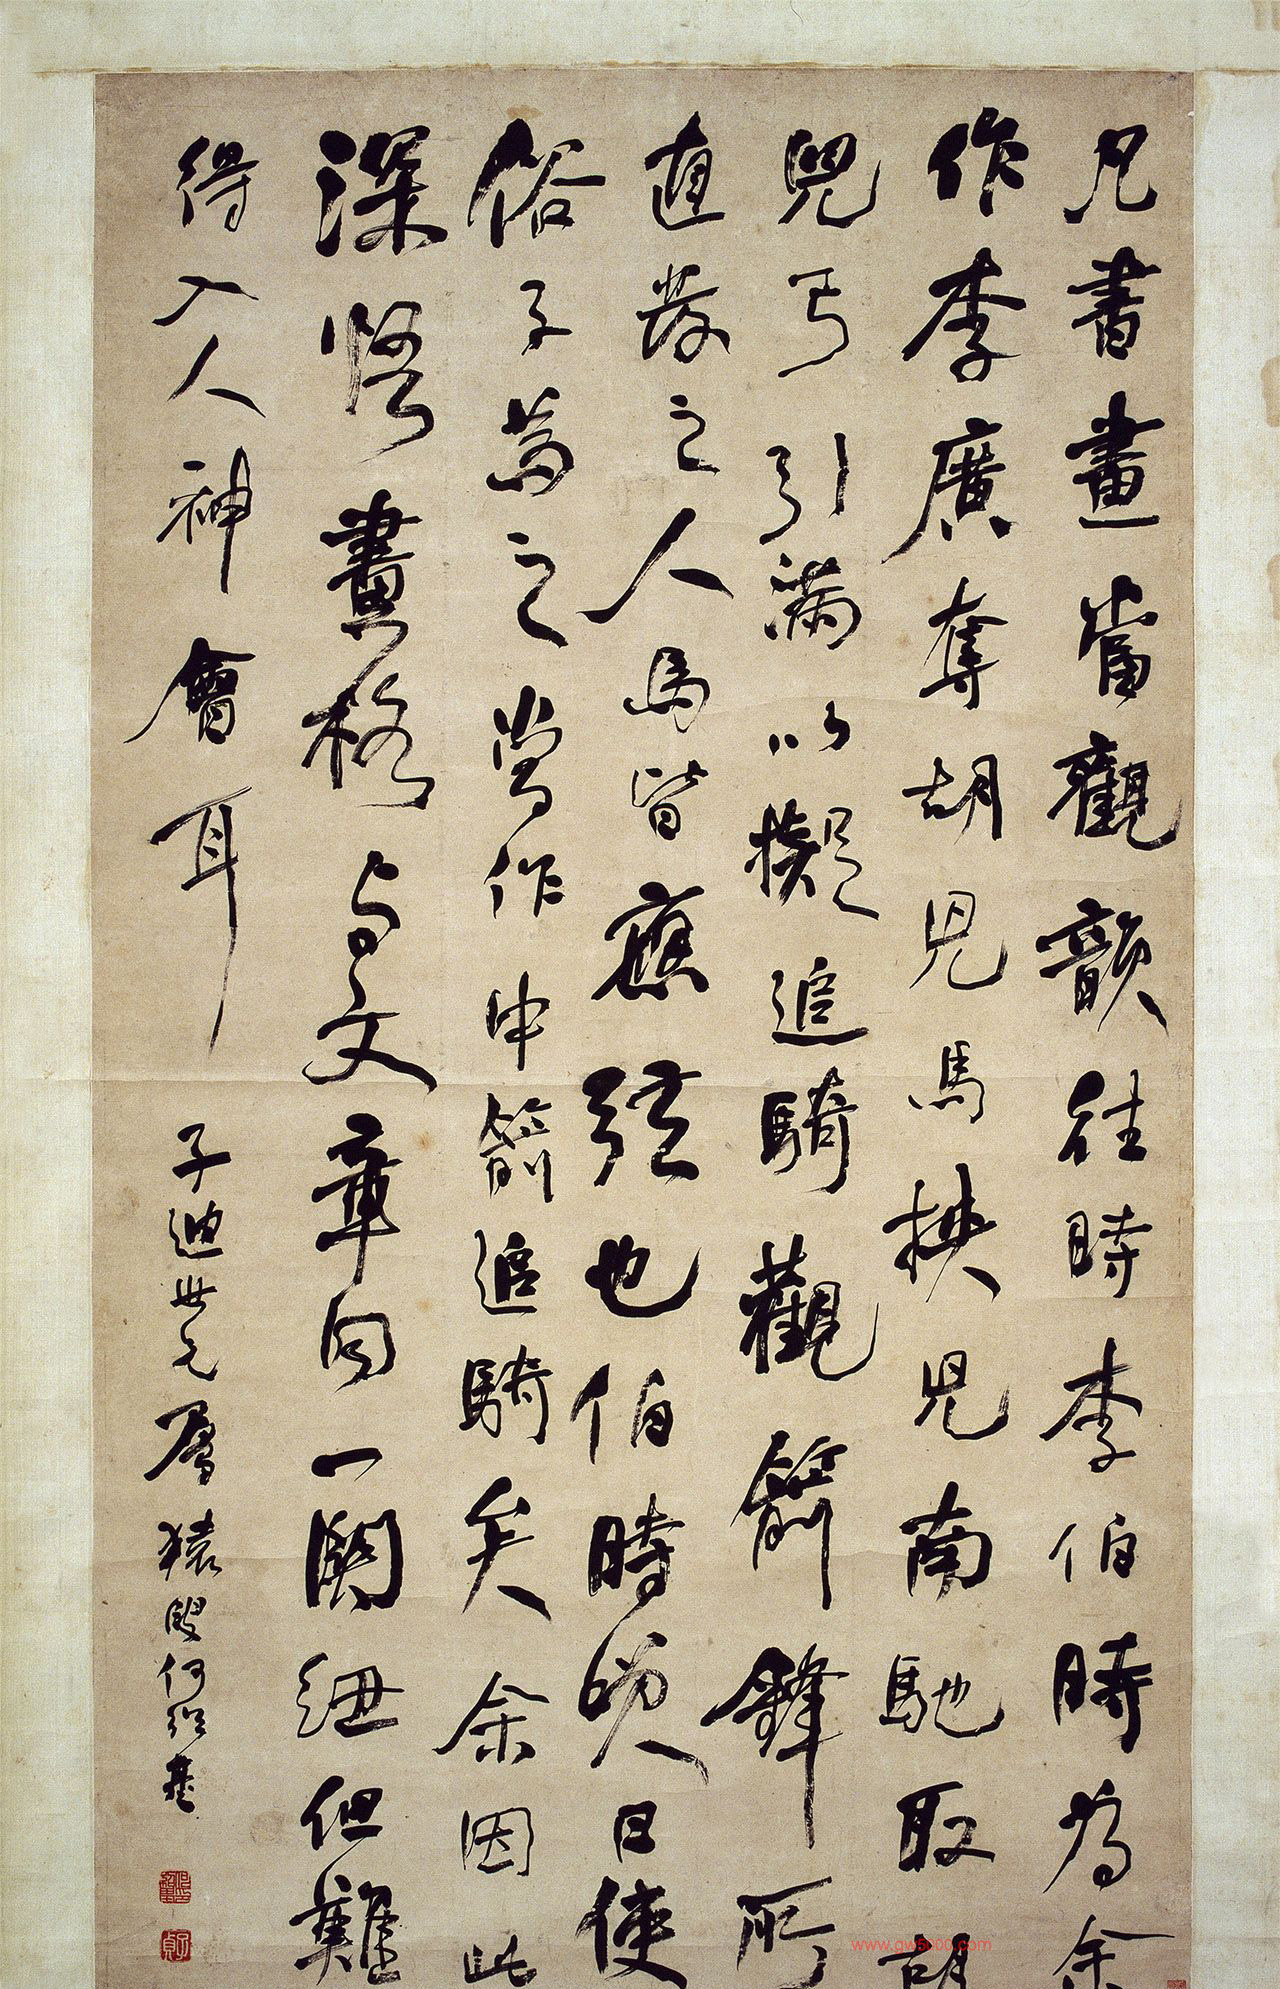 凡書畫當觀韻往時李伯時為余
作李廣奪胡兒馬挾兒南馳取胡
兒弓引滿以擬追騎觀箭鋒所
直發之人馬皆應弦也伯時笑曰使
俗子為之當作中箭追騎矣余因此
深悟畫格與文章同一關紐但難
得入人神會耳
子迪世兄屬 猨叟何紹基
www.gw5000.com